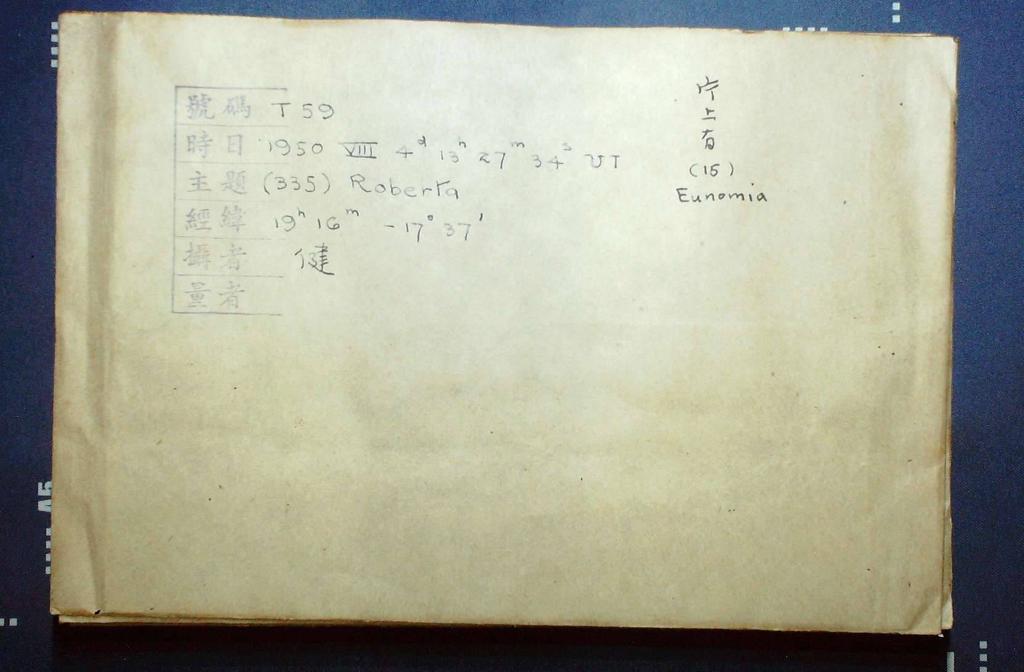 號碼 T 59
時日 1950 VIII 4ᵈ 13ʰ 27ᵐ 34ˢ UT
主題 (335) Roberta
經緯 19ʰ 16ᵐ -17° 37'
攝者 健
量者
上
有
(15)
Eunomia